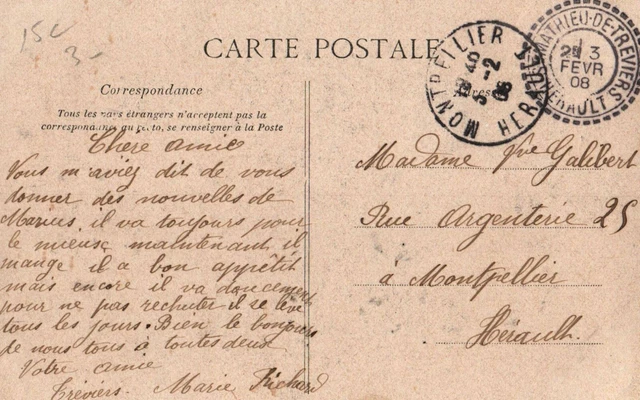 15c
3-
CARTE POSTALE
Correspondance
Tous les pays étrangers n'acceptent pas la
correspondance au recto, se renseigner à la Poste
MONTPELLIER
HERAULT
5-2
08
ST MATHIEU-DE-TREVIERS
3
FEVR
08
HERAULT
Chère amie
Vous m'aviez dit de vous
donner des nouvelles de
Marius. il va toujours pour
le mieux maintenant il
mange il a bon appétit
mais encore il va doucement
pour ne pas rechuter il se lève
tous les jours. Bien le bonjour
de nous tous à toutes deux
Votre amie
Tréviers. Marie Richard
Madame Vve Galibert
Rue Argenterie 25
à Montpellier
Hérault.